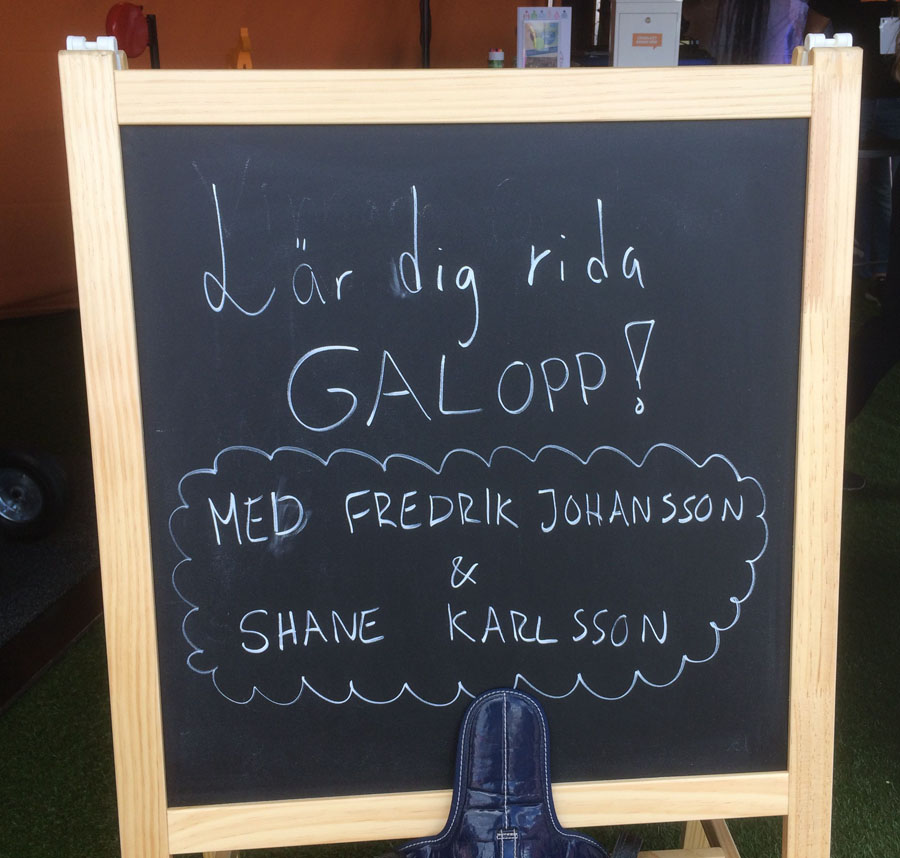 Lär dig rida
GALOPP!
MED FREDRIK JOHANSSON
&
SHANE KARLSSON